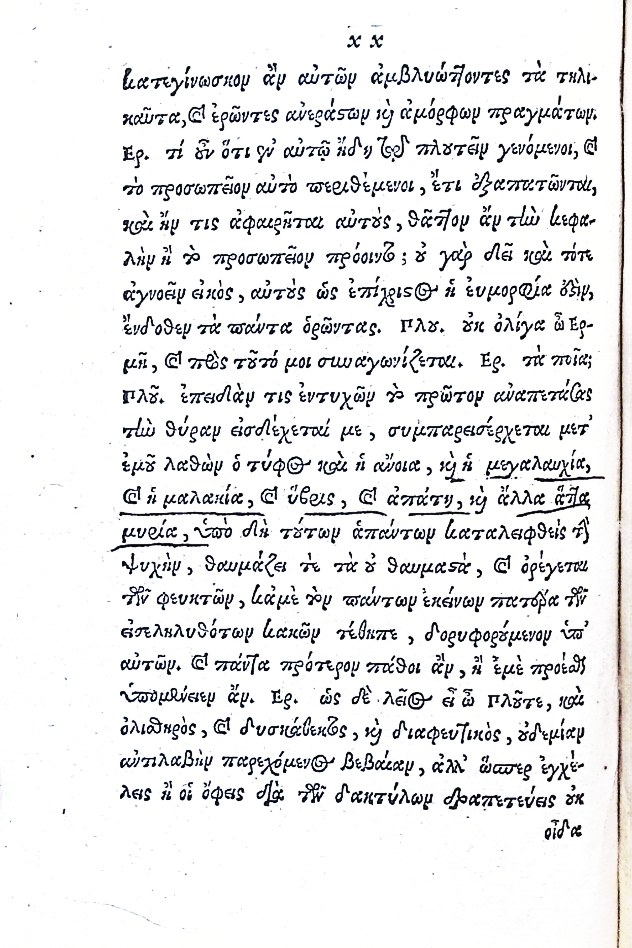 κ κ
κατεγίνωσκον ἂν αὑτῶν ἀμβλυώττοντες τὰ τηλι-
καῦτα, καὶ ἐρῶντες ἀνεράστων καὶ ἀμόρφων πραγμάτων.
Ερ. τί οὖν ὅτι ἐν αὐτῷ ἤδη τῷ πλουτεῖν γενόμενοι, καὶ
τὸ προσωπεῖον αὐτὸ περιθέμενοι, ἔτι ἐξαπατῶνται,
καὶ ἤν τις ἀφαιρῆται αὐτοὺς, θᾶττον ἂν τὴν κεφα-
λὴν ἢ τὸ προσωπεῖον πρόοιντο; οὐ γὰρ δεῖ καὶ τότε
ἀγνοεῖν εἰκὸς, αὐτοὺς ὡς ἐπίχριστος ἡ ἐυμορφία ἐξὶν,
ἔνδοθεν τὰ πάντα ὁρῶντας. Πλου. οὐκ ὀλίγα ὦ Ερ-
μῆ, καὶ πρὸς τοῦτό μοι συναγωνίζεται. Ερ. τὰ ποῖα;
Πλοῦ. ἐπειδὰν τις ἐντυχὼν τὸ πρῶτον ἀναπετάσας
τὴν θύραν εἰσδέχεταί με, συμπαρεισέρχεται μετ'
ἐμοῦ λαθὼν ὁ τύφος καὶ ἡ ἄνοια, καὶ ἡ μεγαλαυχία,
καὶ ἡ μαλακία, καὶ ὕβρις, καὶ ἀπάτη, καὶ ἄλλα ἄττα
μυρία, ὑπὸ δὴ τούτων ἁπάντων καταλειφθεὶς τὴν
ψυχὴν, θαυμάζει τε τὰ οὐ θαυμαστὰ, καὶ ὀρέγεται
τῶν φευκτῶν, κἀμὲ τὸν πάντων ἐκείνων πατέρα τῶν
εἰσεληλυθότων κακῶν τέθηπε, δορυφορούμενον ὑπ'
αὐτῶν. καὶ πάντα πρότερον πάθοι ἂν, ἢ ἐμὲ προέσθαι
ὑπομείνειεν ἄν. Ερ. ὡς δὲ λεῖος εἶ ὦ Πλοῦτε, καὶ
ὀλισθηρὸς, καὶ δυσκάθεκτος, καὶ διαφευκτικὸς, οὐδεμίαν
ἀντιλαβὴν παρεχόμενος βεβαίαν, ἀλλ' ὥσπερ ἐγχέ-
λεις ἢ οἱ ὄφεις διὰ τῶν δακτύλων δραπετεύεις οὐκ
οἶδα